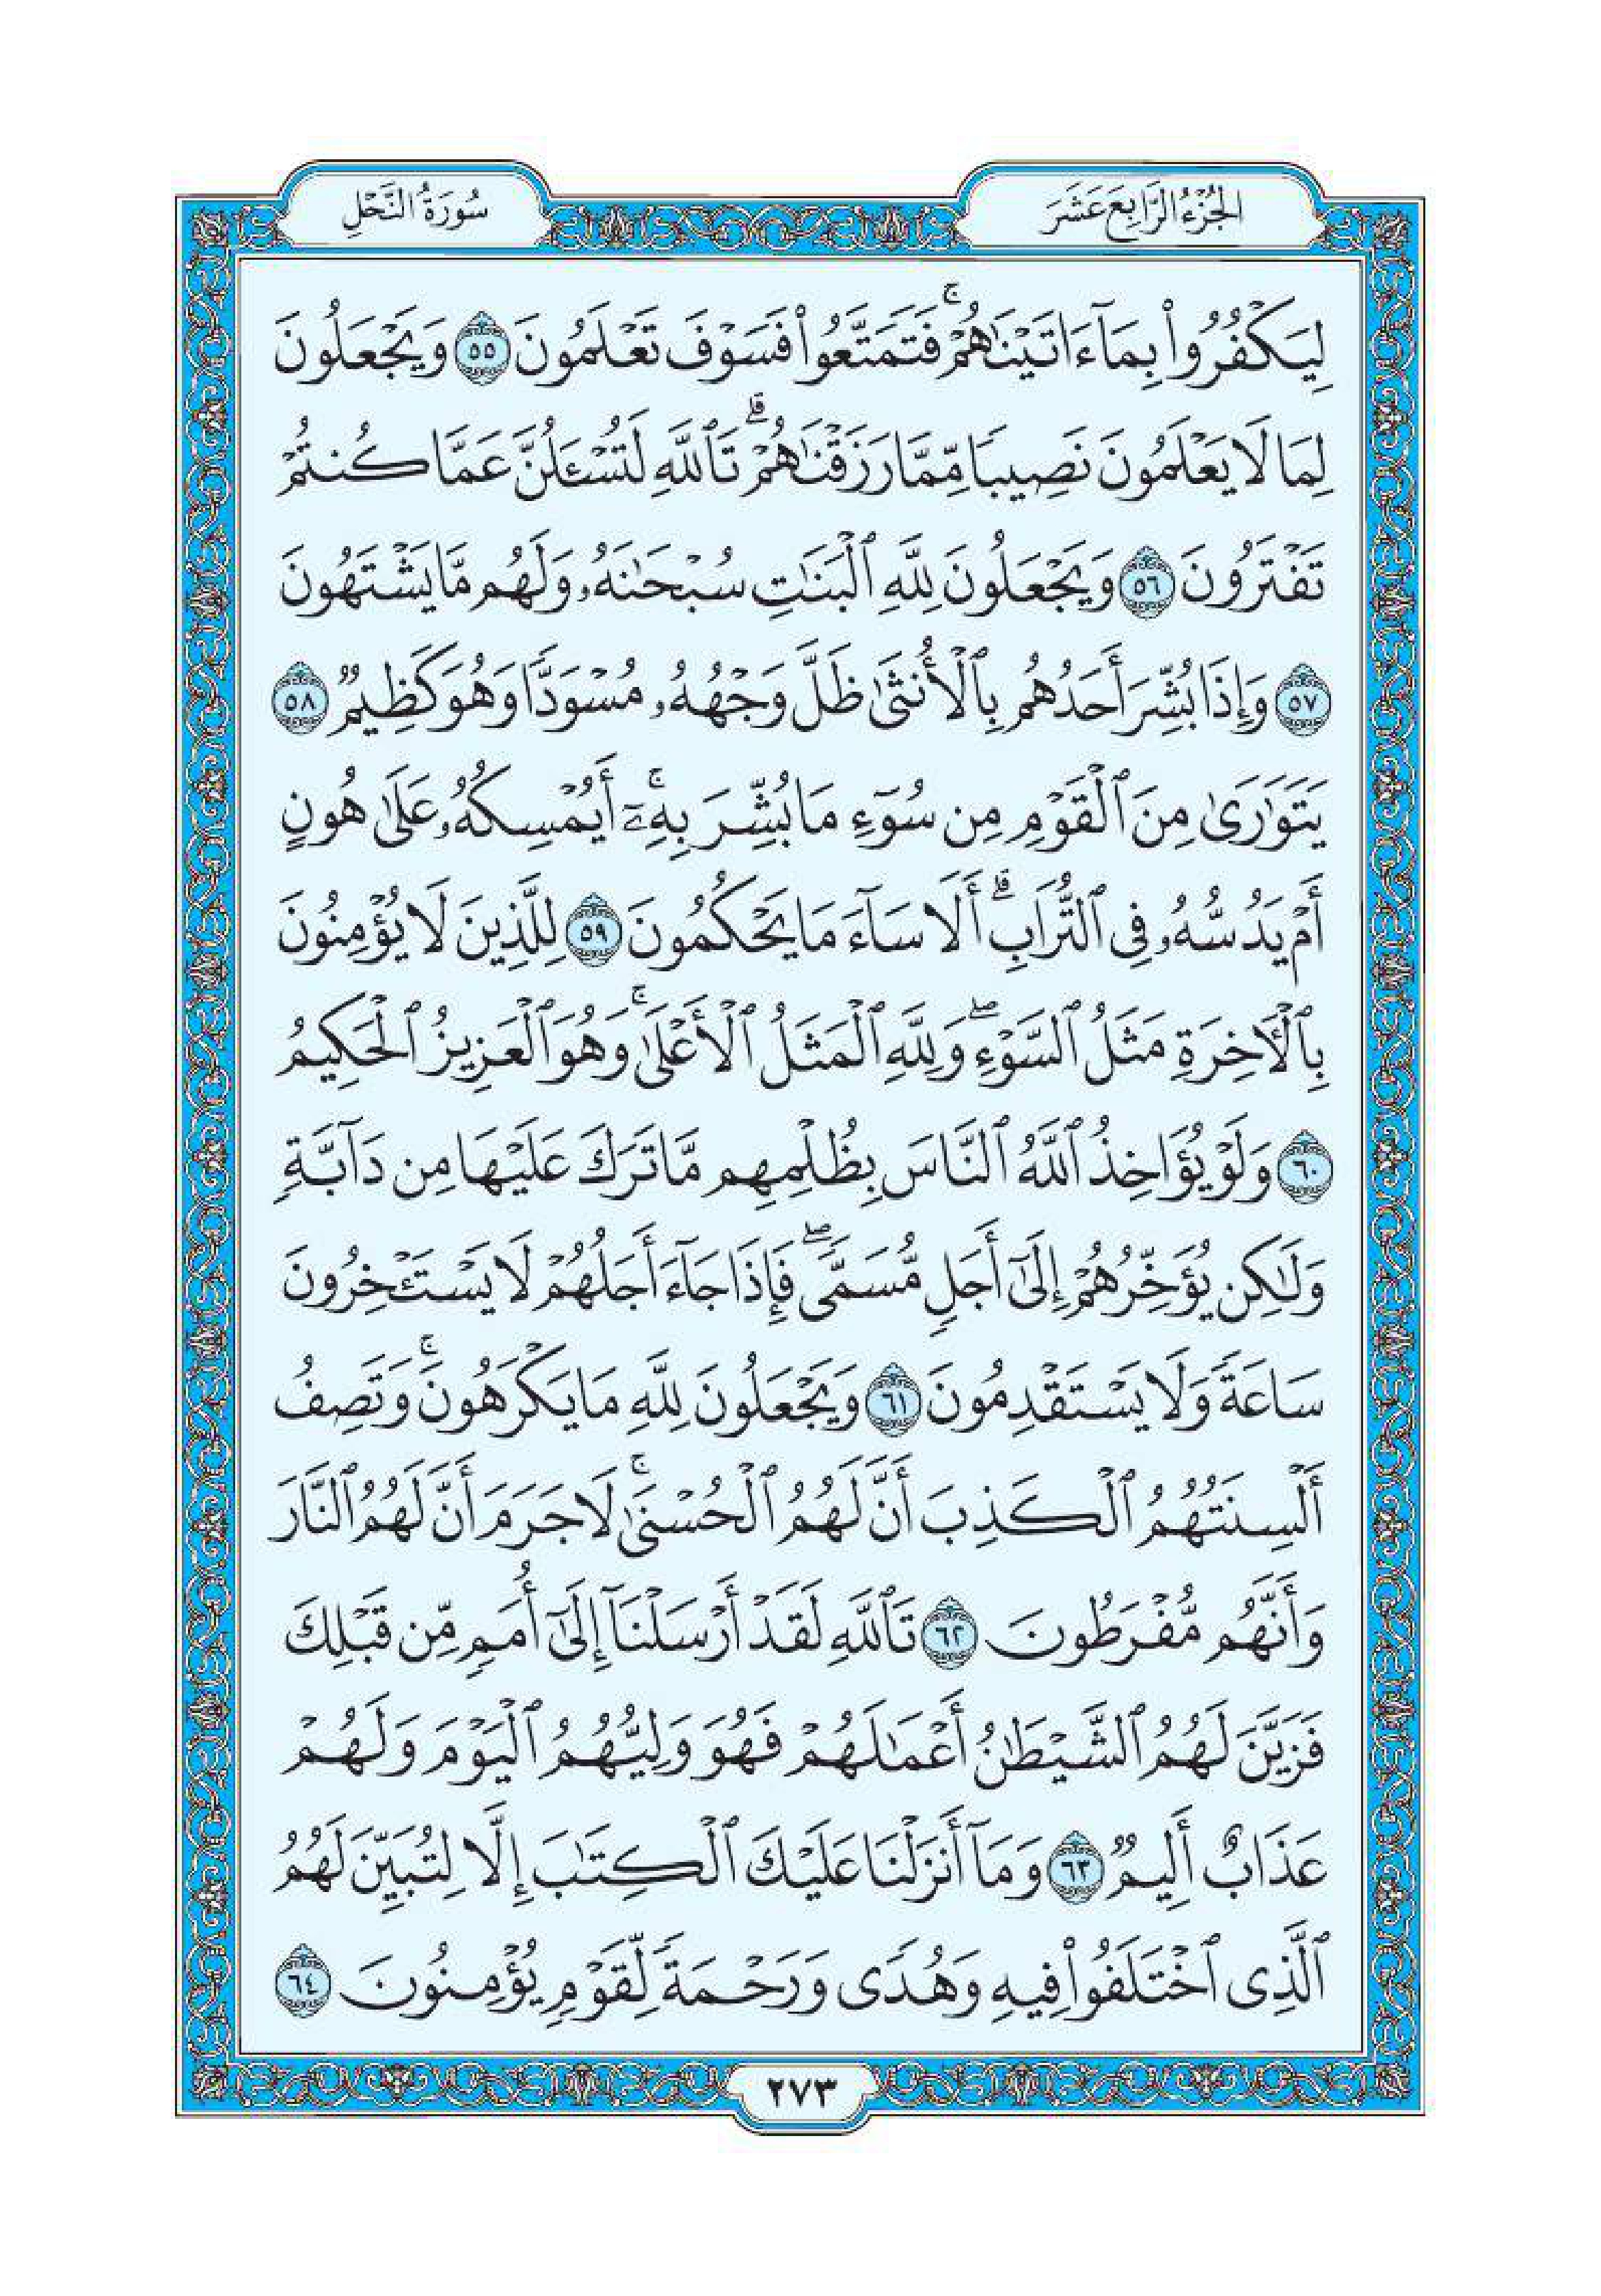 الجُزْءُ الرَّابِعَ عَشَرَ
سُورَةُ النَّحْلِ
لِيَكْفُرُوا۟ بِمَآ ءَاتَيْنَـٰهُمْ ۚ فَتَمَتَّعُوا۟ فَسَوْفَ تَعْلَمُونَ ٥٥ وَيَجْعَلُونَ
لِمَا لَا يَعْلَمُونَ نَصِيبًا مِّمَّا رَزَقْنَـٰهُمْ ۗ تَٱللَّهِ لَتُسْـَٔلُنَّ عَمَّا كُنتُمْ
تَفْتَرُونَ ٥٦ وَيَجْعَلُونَ لِلَّهِ ٱلْبَنَـٰتِ سُبْحَـٰنَهُۥ وَلَهُم مَّا يَشْتَهُونَ
٥٧ وَإِذَا بُشِّرَ أَحَدُهُم بِٱلْأُنثَىٰ ظَلَّ وَجْهُهُۥ مُسْوَدًّا وَهُوَ كَظِيمٌ ٥٨
يَتَوَٰرَىٰ مِنَ ٱلْقَوْمِ مِن سُوٓءِ مَا بُشِّرَ بِهِۦٓ ۚ أَيُمْسِكُهُۥ عَلَىٰ هُونٍ
أَمْ يَدُسُّهُۥ فِى ٱلتُّرَابِ ۗ أَلَا سَآءَ مَا يَحْكُمُونَ ٥٩ لِلَّذِينَ لَا يُؤْمِنُونَ
بِٱلْـَٔاخِرَةِ مَثَلُ ٱلسَّوْءِ ۖ وَلِلَّهِ ٱلْمَثَلُ ٱلْأَعْلَىٰ ۚ وَهُوَ ٱلْعَزِيزُ ٱلْحَكِيمُ
٦٠ وَلَوْ يُؤَاخِذُ ٱللَّهُ ٱلنَّاسَ بِظُلْمِهِم مَّا تَرَكَ عَلَيْهَا مِن دَآبَّةٍ
وَلَـٰكِن يُؤَخِّرُهُمْ إِلَىٰٓ أَجَلٍ مُّسَمًّى ۖ فَإِذَا جَآءَ أَجَلُهُمْ لَا يَسْتَـْٔخِرُونَ
سَاعَةً وَلَا يَسْتَقْدِمُونَ ٦١ وَيَجْعَلُونَ لِلَّهِ مَا يَكْرَهُونَ ۚ وَتَصِفُ
أَلْسِنَتُهُمُ ٱلْكَذِبَ أَنَّ لَهُمُ ٱلْحُسْنَىٰ ۚ لَا جَرَمَ أَنَّ لَهُمُ ٱلنَّارَ
وَأَنَّهُم مُّفْرَطُونَ ٦٢ تَٱللَّهِ لَقَدْ أَرْسَلْنَآ إِلَىٰٓ أُمَمٍ مِّن قَبْلِكَ
فَزَيَّنَ لَهُمُ ٱلشَّيْطَـٰنُ أَعْمَـٰلَهُمْ فَهُوَ وَلِيُّهُمُ ٱلْيَوْمَ وَلَهُمْ
عَذَابٌ أَلِيمٌ ٦٣ وَمَآ أَنزَلْنَا عَلَيْكَ ٱلْكِتَـٰبَ إِلَّا لِتُبَيِّنَ لَهُمُ
ٱلَّذِى ٱخْتَلَفُوا۟ فِيهِ وَهُدًى وَرَحْمَةً لِّقَوْمٍ يُؤْمِنُونَ ٦٤
٢٧٣